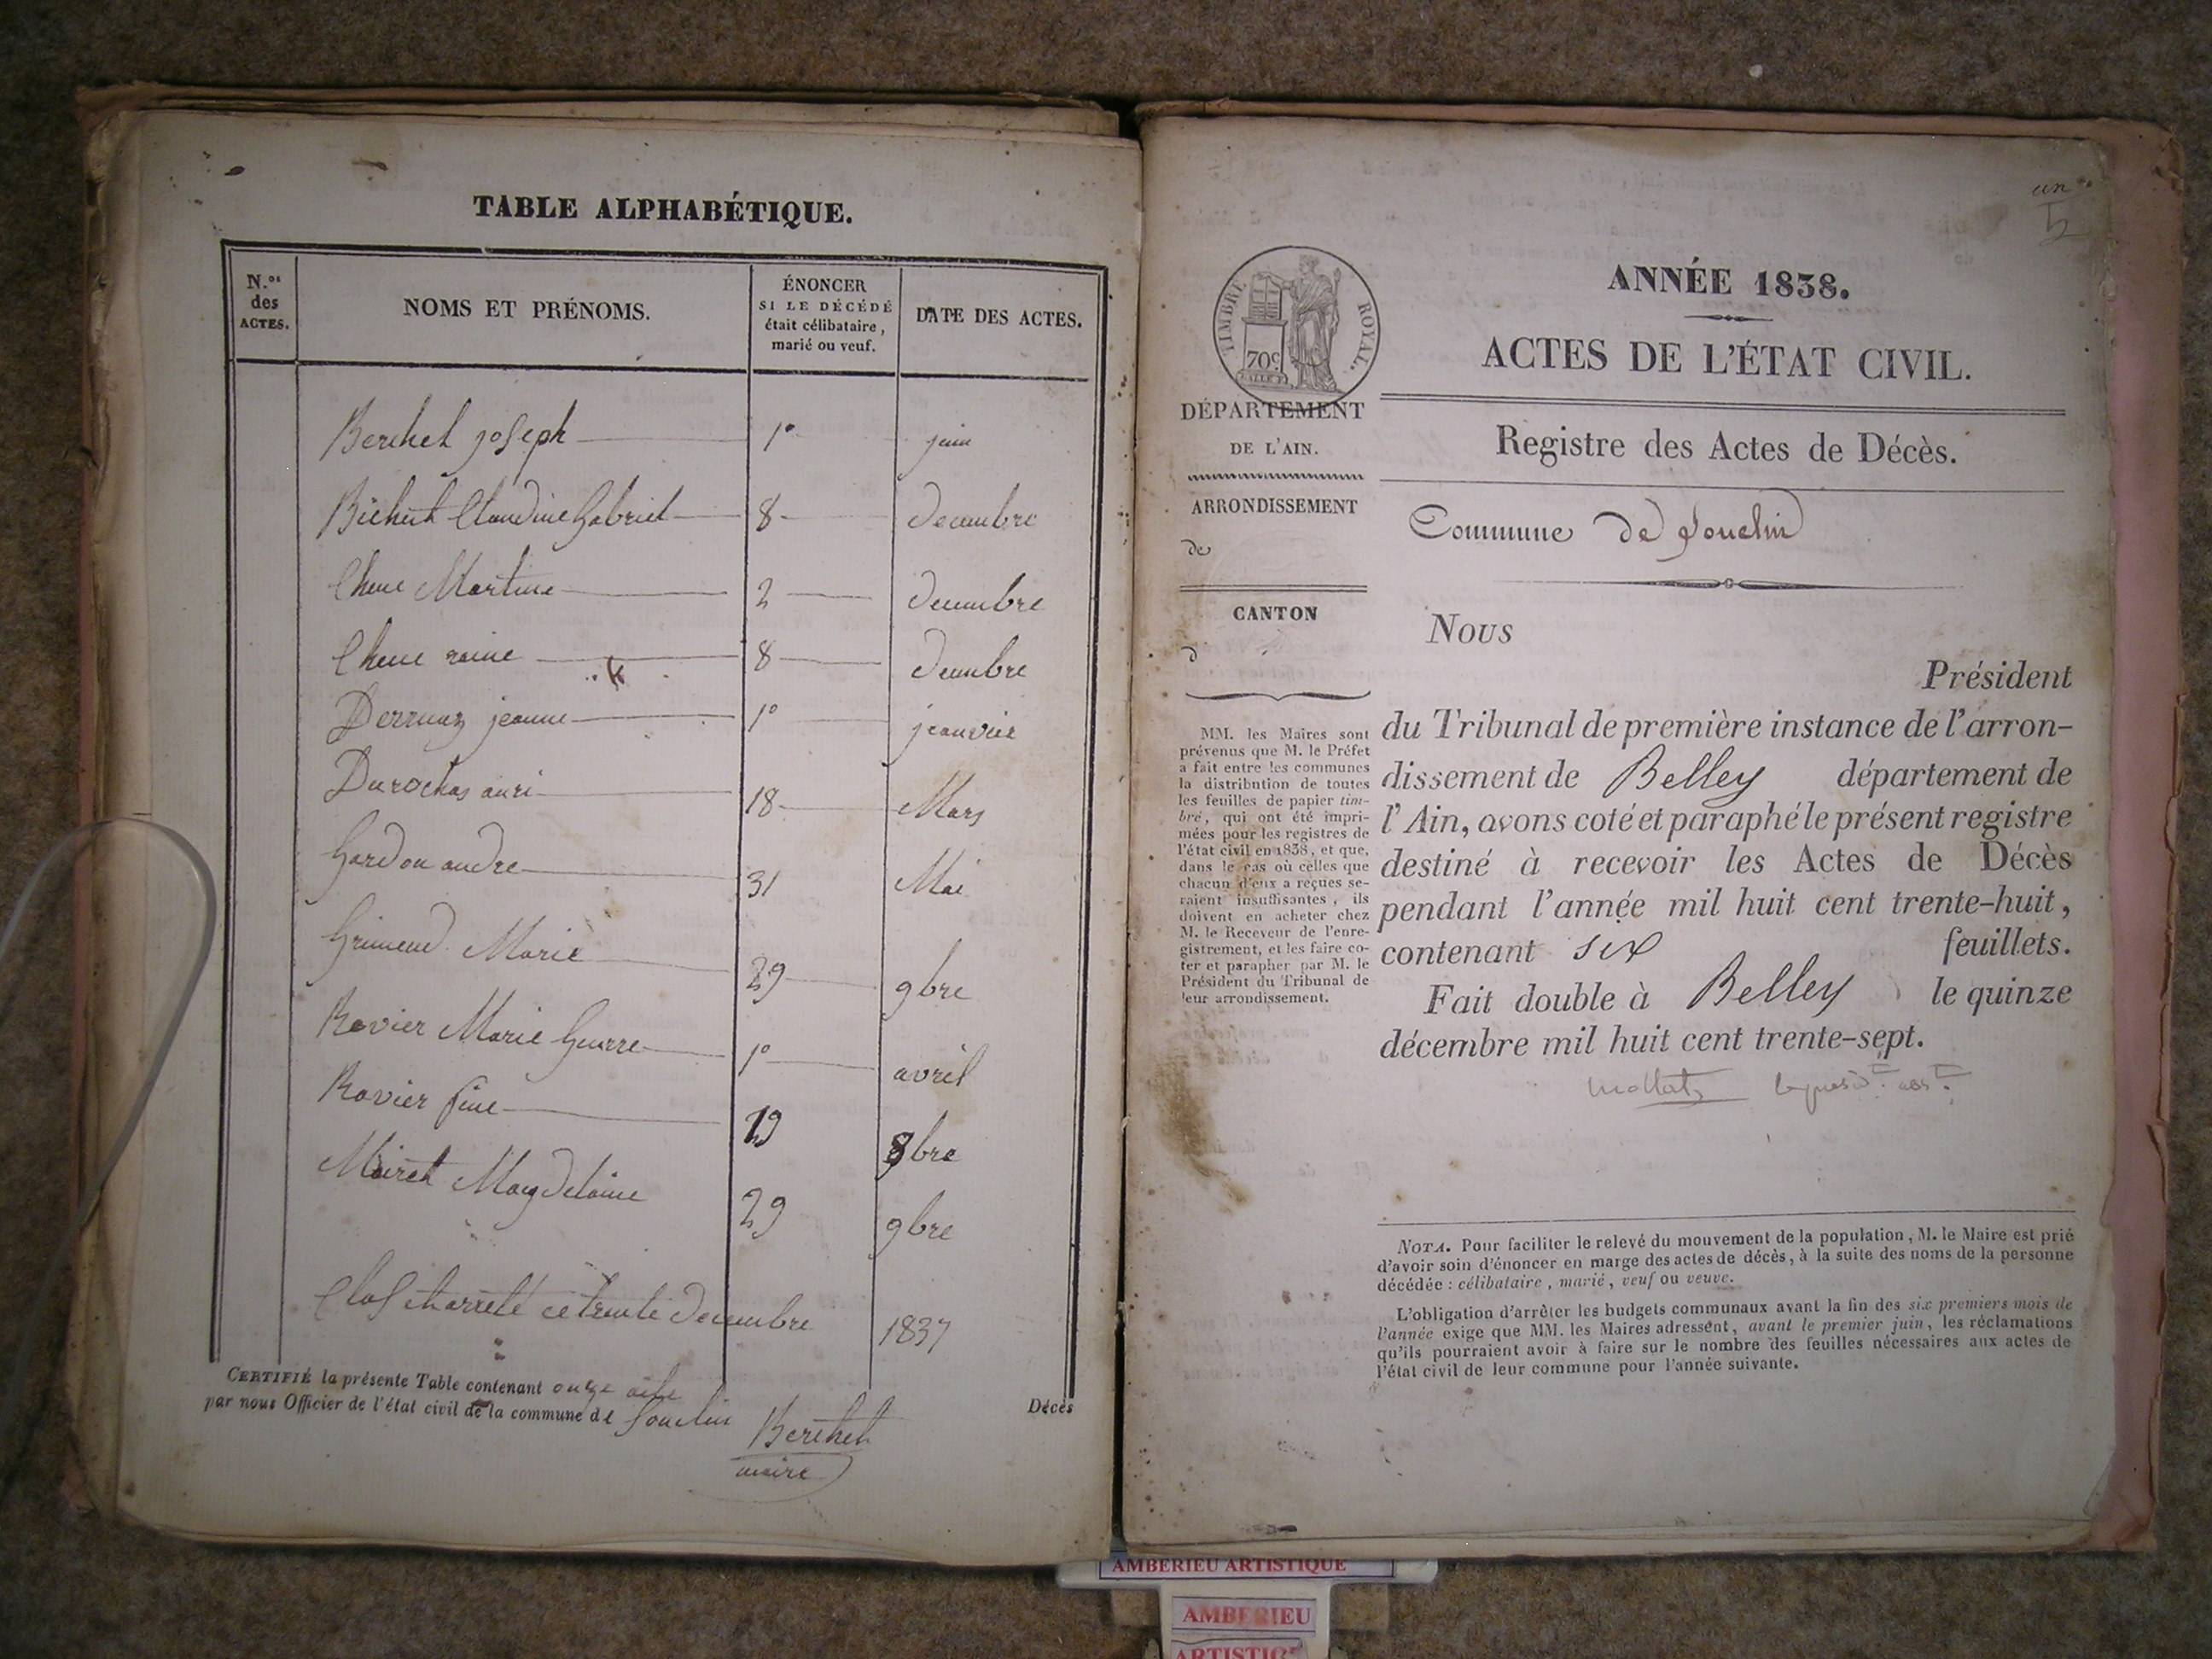 TABLE ALPHABÉTIQUE.
N.os des ACTES.
NOMS ET PRÉNOMS.
ÉNONCER
SI LE DÉCÉDÉ
était célibataire,
marié ou veuf.
DATE DES ACTES.
Berthet joseph 1° juin
Claudine Gabriel 8 decembre
Chene Martine 2 decembre
Chene raine 8 decembre
jeanne 1° jeanvier
18 Mars
andre 31 Mai
Marie 29 9bre
Rovier Marie 1° avril
Rovier fine 19 8bre
Mairet Magdelaine 29 9bre
Clos et arrete ce trente decembre 1837
CERTIFIÉ la présente Table contenant onze
par nous Officier de l'état civil de la commune de Souclin
Décès
Berthet
maire
un
5
TIMBRE ROYAL.
70c
ANNÉE 1838.
ACTES DE L'ÉTAT CIVIL.
DÉPARTEMENT
DE L'AIN.
ARRONDISSEMENT
de
CANTON
d
MM. les Maires sont
prévenus que M. le Préfet
a fait entre les communes
la distribution de toutes
les feuilles de papier tim-
bré, qui ont été impri-
mées pour les registres de
l'état civil en 1838, et que,
dans le cas où celles que
chacun d'eux a reçues se-
raient insuffisantes, ils
doivent en acheter chez
M. le Receveur de l'enre-
gistrement, et les faire co-
ter et parapher par M. le
Président du Tribunal de
leur arrondissement.
Registre des Actes de Décès.
Commune de Souclin
Nous
Président
du Tribunal de première instance de l'arron-
dissement de Belley département de
l'Ain, avons coté et paraphé le présent registre
destiné à recevoir les Actes de Décès
pendant l'année mil huit cent trente-huit,
contenant six feuillets.
Fait double à Belley le quinze
décembre mil huit cent trente-sept.
NOTA. Pour faciliter le relevé du mouvement de la population, M. le Maire est prié
d'avoir soin d'énoncer en marge des actes de décès, à la suite des noms de la personne
décédée : célibataire, marié, veuf ou veuve.
L'obligation d'arrêter les budgets communaux avant la fin des six premiers mois de
l'année exige que MM. les Maires adressent, avant le premier juin, les réclamations
qu'ils pourraient avoir à faire sur le nombre des feuilles nécessaires aux actes de
l'état civil de leur commune pour l'année suivante.
AMBERIEU ARTISTIQUE
AMBERIEU